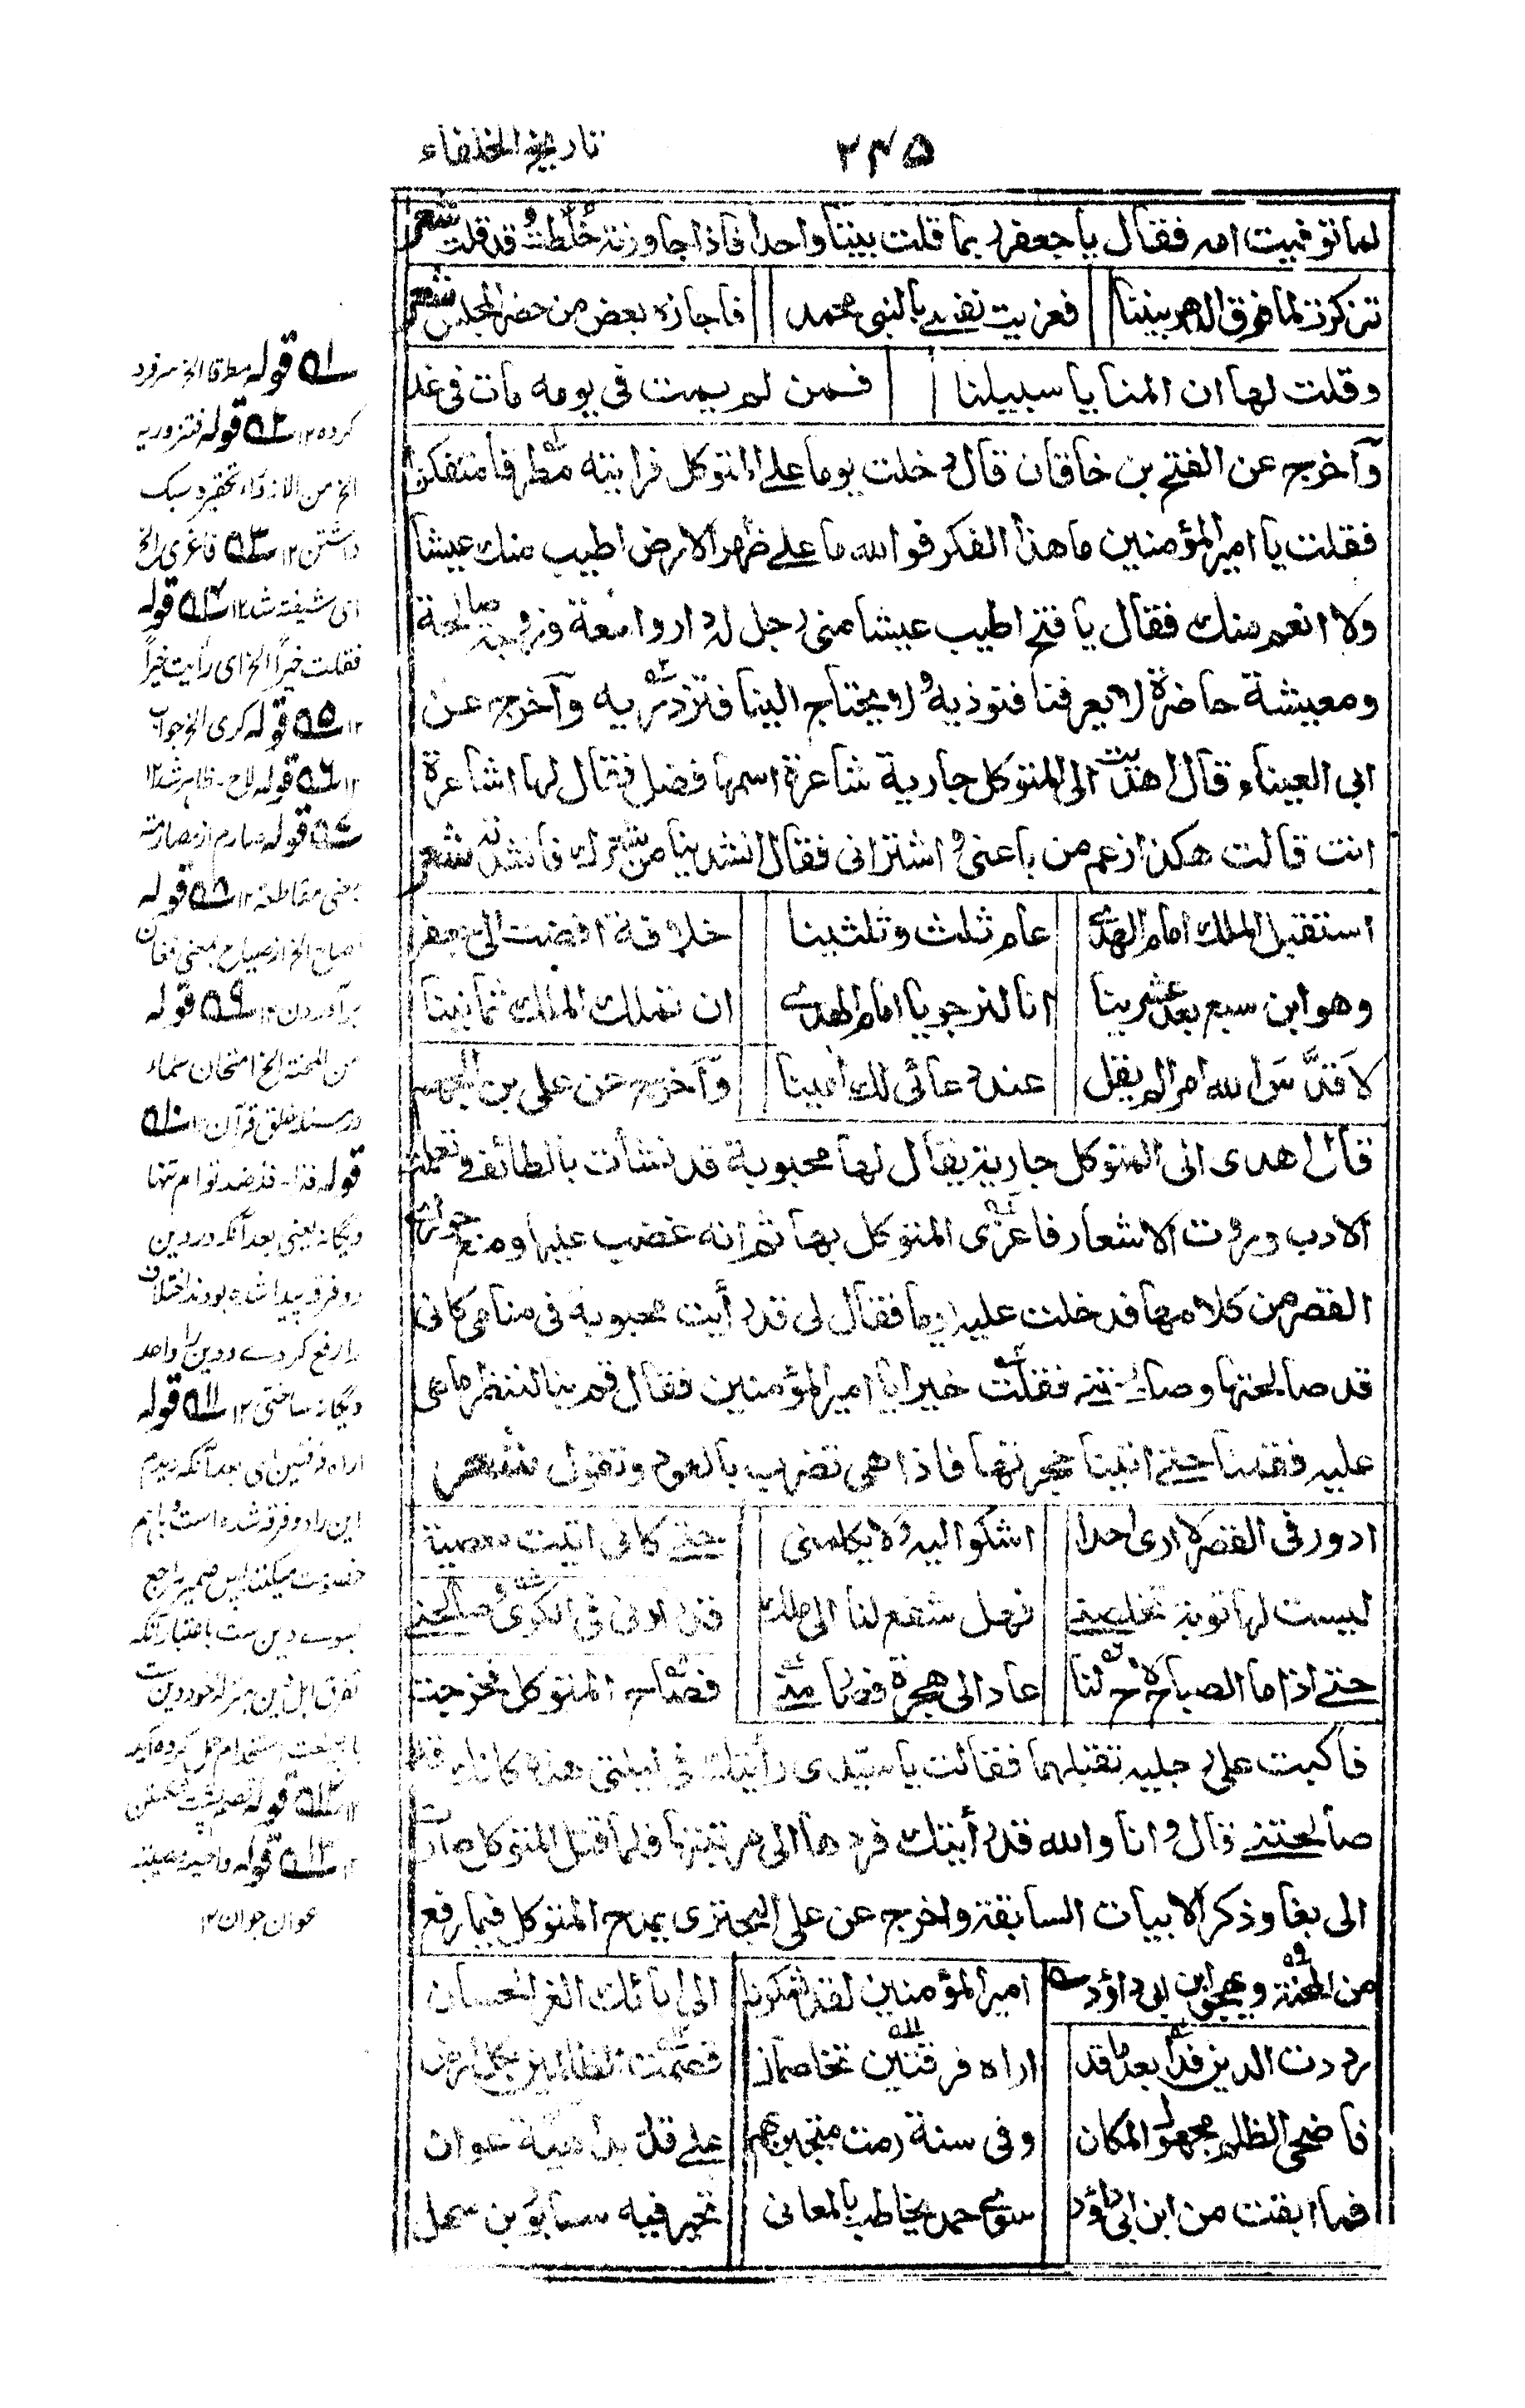 ٢٣٥ تاريخ الخلفاء
لما توفيت امه فقال يا جعفر ربما قلت بيتا واحدا فاذا جاوزته خلطت وقد قلت شعر
تذكرت لما فرق الدهر بيننا فعزيت نفسي بالنبي محمد فاجازه بعض من حضر المجلس شعر
وقلت لها ان المنايا سبيلنا فمن لم يمت في يومه مات في غد
وآخرج عن الفتح بن خاقان قال دخلت يوما على المتوكل فرايته مطرقا متفكرا
فقلت يا امير المؤمنين ما هذا الفكر فوالله ما على ظهر الارض اطيب منك عيشا
ولا انعم منك فقال يا فتح اطيب عيشا مني رجل له دار واسعة وزوجة صالحة
ومعيشة حاضرة لا يعرفنا فنوذيه ولا يحتاج الينا فنزدريه وآخرج عن
ابي العيناء قال اهديت الى المتوكل جارية شاعرة اسمها فضل فقال لها اشاعرة
انت قالت هكذا زعم من باعني واشتراني فقال انشدينا من شعرك فانشدته شعر
استقبل الملك امام الهدى عام ثلث وثلثينا خلافة افضت الى جعفر
وهو ابن سبع بعد عشرينا انا لنرجو يا امام الهدى ان تملك الملك ثمانينا
لا قدس الله امرا لم يقل عند دعائي لك امينا وآخرج عن علي بن الجهم
قال اهدى الى المتوكل جارية يقال لها محبوبة قد نشأت بالطائف وتعلمت
الادب وروت الاشعار فاغرى المتوكل بها ثم انه غضب عليها ومنع جواري
القصر من كلامها فدخلت عليه يوما فقال لي قد رأيت محبوبة في منامي كاني
قد صالحتها وصالحتني فقلت خيرا يا امير المؤمنين فقال قم بنا لننظر ما هي
عليه فقمنا حتى اتينا حجرتها فاذا هي تضرب بالعود وتقول شعر
ادور في القصر لا ارى احدا اشكو اليه ولا يكلمني حتى كاني اتيت معصية
ليست لها توبة تخلصني فهل شفيع لنا الى ملك قد زارني في الكرى وصالحني
حتى اذا ما الصباح لاح لنا عاد الى هجرة فصارمني فصاح المتوكل فخرجت
فاكبت على رجليه تقبلهما فقالت يا سيدي رأيتك في ليلتي هذه كانك قد
صالحتني قال وانا والله قد رأيتك فردها الى مرتبتها فلما قتل المتوكل صارت
الى بغا وذكر الابيات السابقة واخرج عن علي البحتري يمدح المتوكل فيما رفع
من المحنة ويهجو ابن ابي داؤد امير المؤمنين لقد شكرنا الى ابائك الغر الحسان
رددت الدين فذا بعد ما قد اراه فرقتين تخاصمان قصمت الظالمين بكل ارض
فاضحى الظلم مجهول المكان وفي سنة رمت متجبريهم على قدر بداهية عوان
فما ابقت من ابن ابي داؤد سوى حمد يخاطب بالمعاني تحير فيه سابور بن سهل
قوله مطرقا الخ سر فرود
كرده ١٢ قوله فنزدريه
الخ من الازدراء تحقير وسبك
داشتن ١٢ فاغرى الخ
اى شيفته شد ١٢ قوله
فقلت خيراً الخ اى رأيت خيراً
١٢ قوله كرى الخ خواب
١٢ قوله لاح ظاهر شد ١٢
قوله صارم از مصارمة
بمعنى مقاطعة ١٢ قوله
صاح الخ از صياح بمعنى فغان
برآوردن ١٢ قوله
من المحنة الخ امتحان علماء
در مسئلة خلق قرآن ١٢
قوله فذا فذ ضد توام تنها
ويگانه يعنى بعد آنكه در دين
دو فرقه پيدا شده بودند اختلاف
را رفع كردى ودين را واحد
ويگانه ساختى ١٢ قوله
اراه فرقتين اى بعد آنكه ديدم
اين را دو فرقه شده است باهم
خصومت ميكنند پس ضمير راجع
بسوے دين ست باعتبار آنكه
١٢ قوله
١٢ قوله داهية مصيبة
عوان جوان ١٢